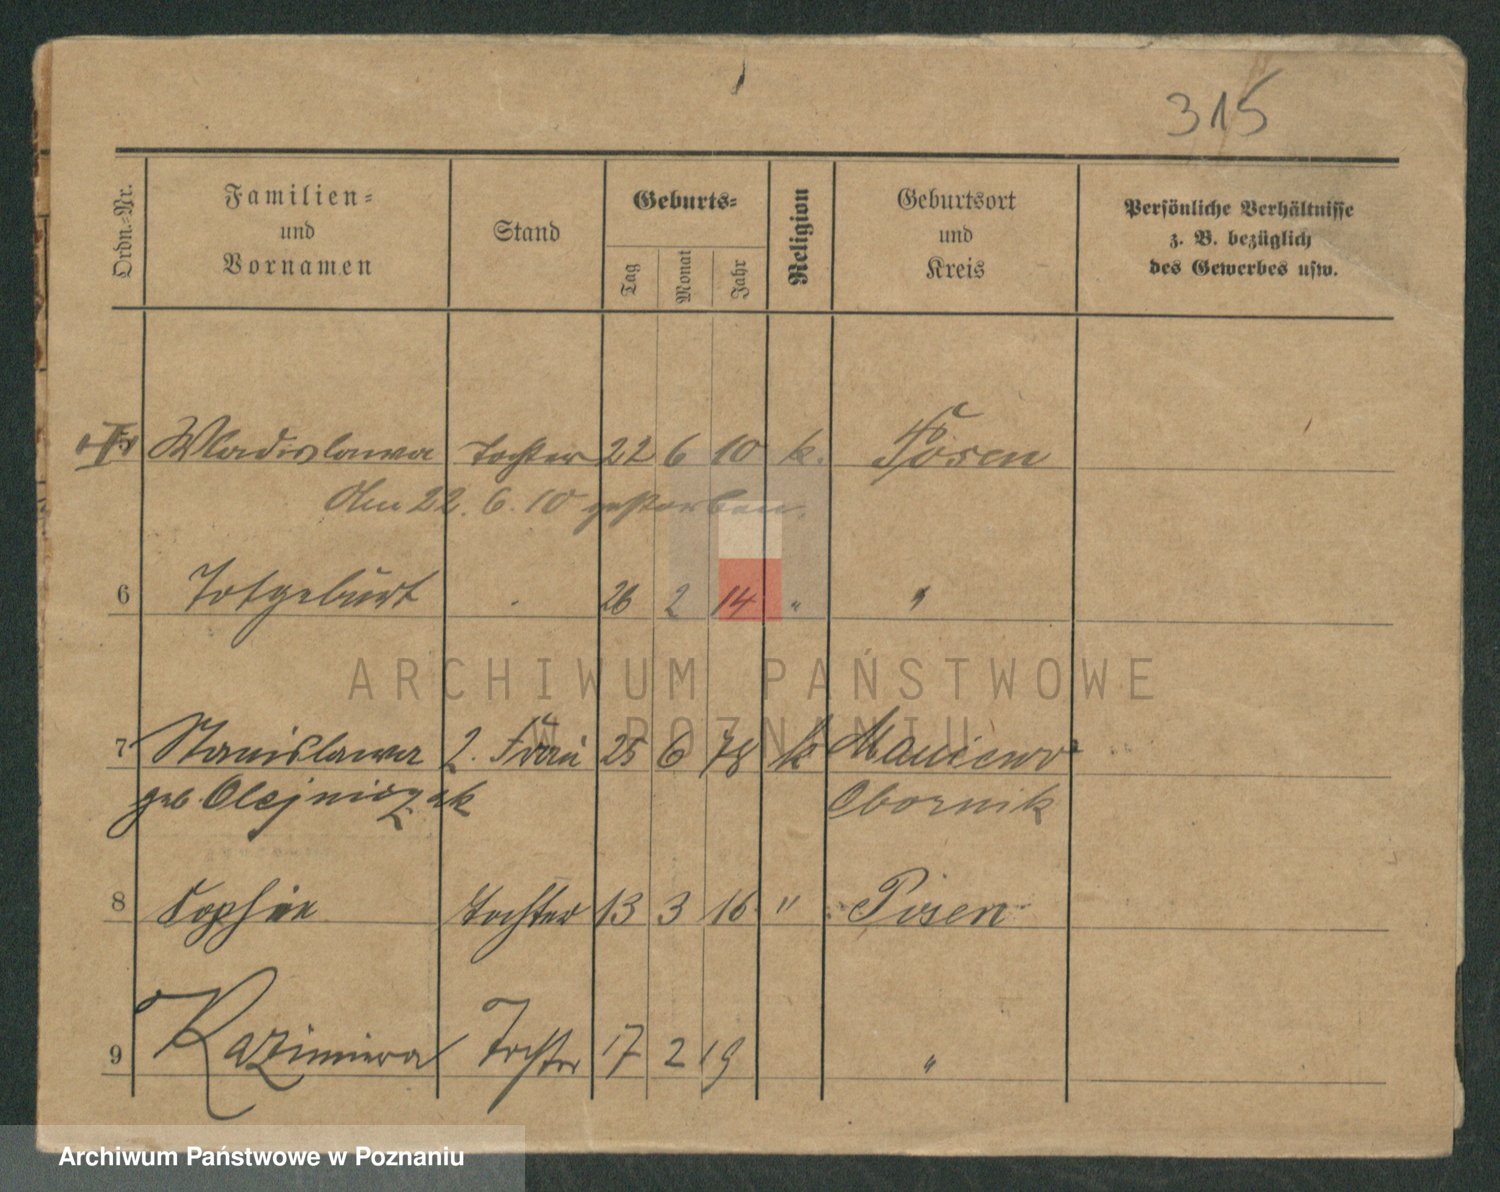 315
Ordn.-Nr.
Familien-
und
Vornamen
Stand
Geburts-
Tag
Monat
Jahr
Religion
Geburtsort
und
Kreis
Persönliche Verhältnisse
z. B. bezüglich
des Gewerbes usw.
5 Wladislawa Tochter 22 6 10 k. Posen
Am 22. 6. 10 gestorben.
6 Totgeburt 26 2 14 " "
7 Stanislawa 2. Frau 25 6 78 k Maniewo
geb. Olejniczak Obornik
8 Sophie Tochter 13 3 16 " Posen
9 Kazimiera Tochter 17 2 19 "
ARCHIWUM PAŃSTWOWE
W POZNANIU
Archiwum Państwowe w Poznaniu